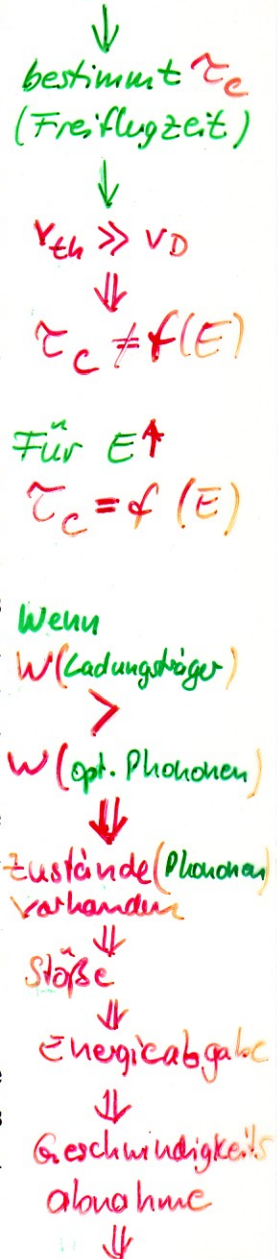 ↓
bestimmt τc
(Freiflugzeit)
↓
vth ≫ vD
⇓
τc ≠ f(E)
Für E↑
τc = f (E)
Wenn
W(Ladungsträger)
>
W(opt. Phononen)
⇓
Zustände (Phononen)
vorhanden
⇓
Stöße
⇓
Energieabgabe
⇓
Geschwindigkeits
abnahme
⇓